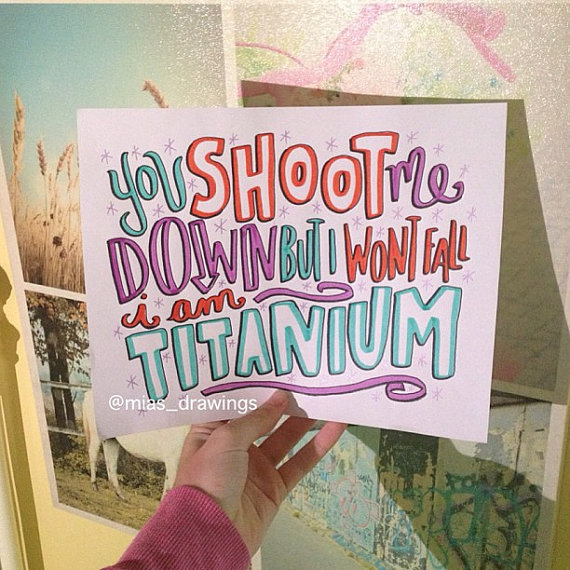 you SHOOT me
DOWN BUT I WONT FALL
i am
TITANIUM
@mias_drawings